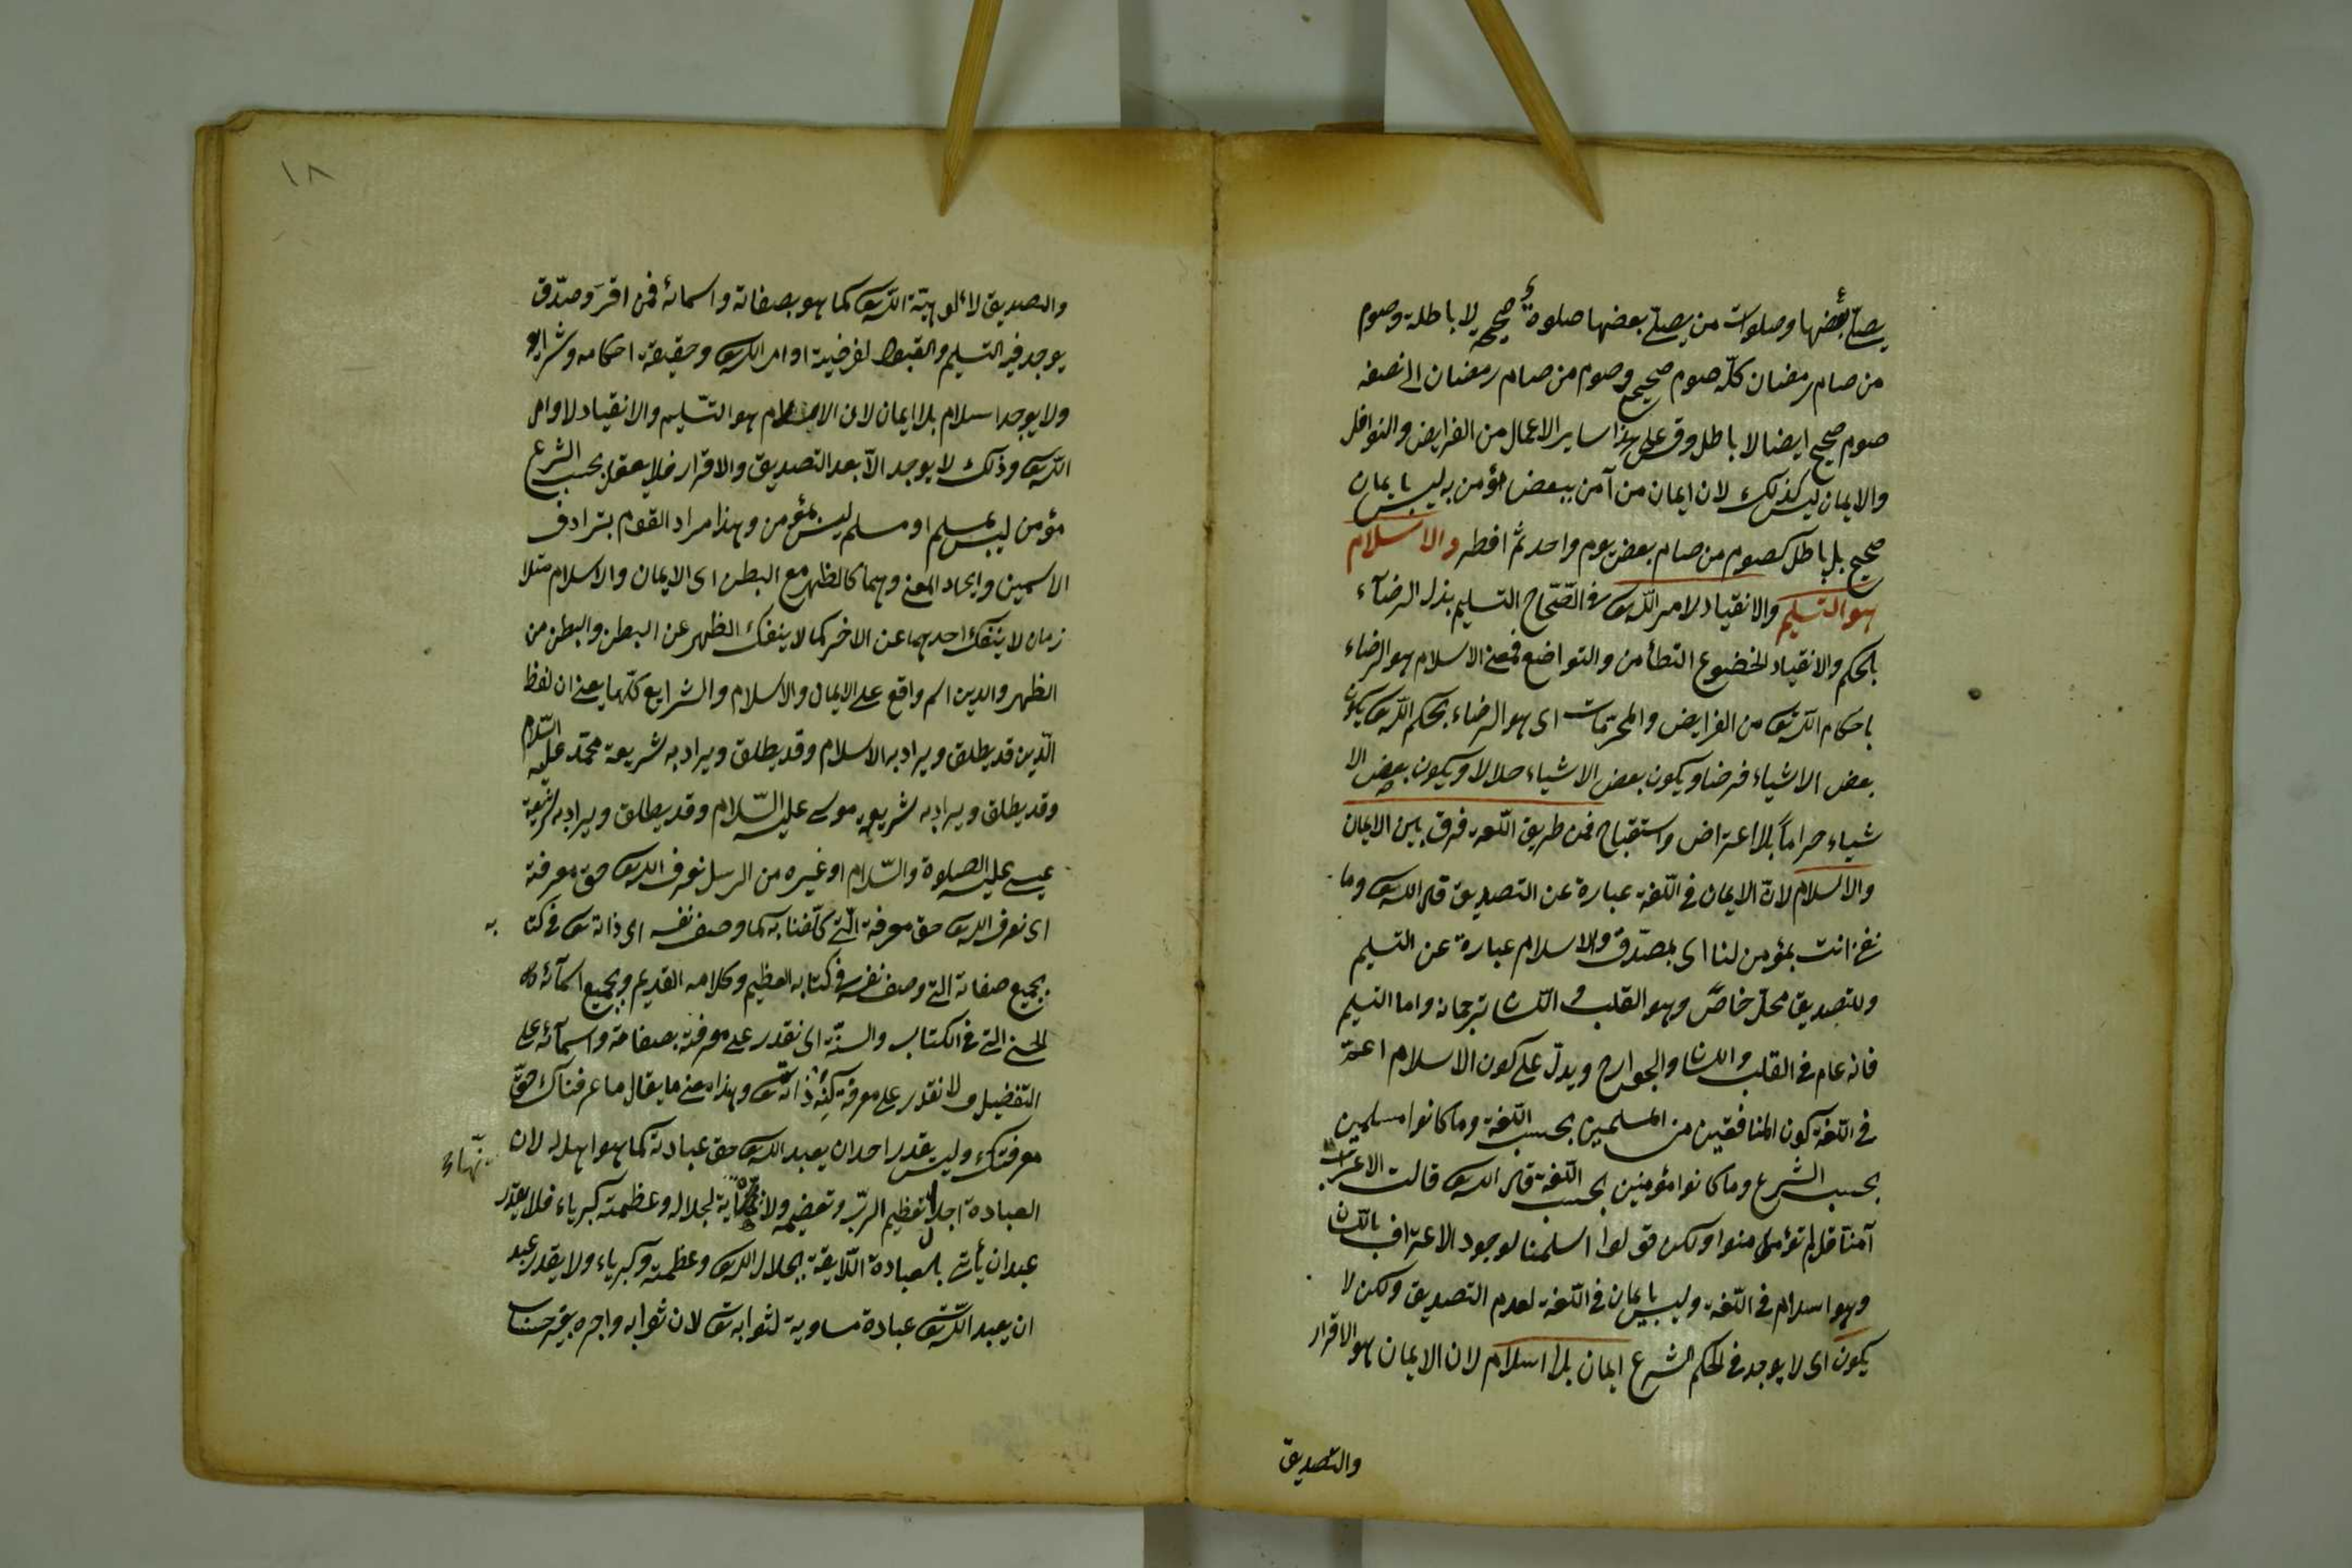 يصلّ بعضها وصلوات من يصلّ بعضها صلوة صحيحة لا باطلة وصوم
من صام رمضان كلّه صوم صحيح وصوم من صام رمضان الى نصفه
صوم صحيح ايضا لا باطل وقس على هذا ساير الاعمال من الفرايض والنوافل
والايمان ليس كذلك لان ايمان من آمن ببعض المؤمن به ليس بايمان
صحيح بل باطل كصوم من صام بعض يوم واحد ثم افطر والاسلام
هو التسليم والانقياد لامر الله تع في الصّحاح التسليم بذل الرضآء
بالحكم والانقياد الخضوع التطأمن والتواضع فمعنى الاسلام هو الرضاء
باحكام الله تع من الفرايض والمحرّمات اى هو الرضاء بحكم الله تع بكون
بعض الاشياء فرضا ويكون بعض الاشياء حلالا ويكون بعض الا
شياء حراماً بلا اعتراض واستقباح فمن طريق اللّغة فرق بين الايمان
والاسلام لانّ الايمان فى اللّغة عبارة عن التصديق قال الله تع وما
انت بمؤمن لنا اى بمصدّق والاسلام عبارة عن التسليم
وللتصديق محلّ خاصّ وهو القلب واللسان ترجمانه واما التسليم
فانه عام فى القلب واللسان والجوارح ويدلّ على كون الاسلام اعمّ
فى اللّغة كون المنافقين من المسلمين بحسب اللّغة وما كانوا مسلمين
بحسب الشرع وما كانوا مؤمنين بحسب اللّغة قال الله تع قالت الاعراب
آمنّا قل لم تؤمنوا ولكن قولوا اسلمنا لوجود الاعتراف باللّسان
وهو اسلام فى اللّغة وليس بايمان فى اللّغة لعدم التصديق ولكن لا
يكون اى لا يوجد فى الحكم الشرع ايمان بلا اسلام لان الايمان هو الاقرار
والتصديق
١٨
والتصديق لالوهيّة الله تع كما هو بصفاته واسمائه فمن اقرّ وصدّق
يوجد فيه التسليم والقبول لفرضية اوامر الله تع وحقيقة احكامه وشرايعه
ولا يوجد اسلام بلا ايمان لان الاسلام هو التسليم والانقياد لاوامر
الله تع وذلك لا يوجد الّا بعد التصديق والاقرار فلا يعقل بحسب الشرع
مؤمن ليس بمسلم او مسلم ليس بمؤمن وهذا مراد القوم بترادف
الاسمين واتحاد المعنى وهما كالظهر مع البطن اى الايمان والاسلام متلا
زمان لا ينفك احدهما عن الاخر كما لا ينفك الظهر عن البطن والبطن من
الظهر والدين اسم واقع على الايمان والاسلام والشرايع كلّها يعنى ان لفظ
الدّين قد يطلق ويراد به الاسلام وقد يطلق ويراد به شريعة محمّد عليه السّلام
وقد يطلق ويراد به شريعة موسى عليه السّلام وقد يطلق ويراد به شريعة
عيسى عليه الصلوة والسّلام او غيره من الرسل نعرف الله تع حق معرفته
اى نعرف الله تع حق معرفته الّتى كلّفنا به كما وصف نفسه اى ذاته تع فى كتابه
بجميع صفاته التى وصف نفسه فى كتابه العظيم وكلامه القديم وبجميع اسمآئه
الحسنى التى فى الكتاب والسنّة اى نقدر على معرفته بصفاته واسمآئه على
التفضيل ولا نقدر على معرفة كنه ذاته تع وهذا معنى ما يقال ما عرفناك حقّ
معرفتك وليس يقدر احد ان يعبد الله تع حق عبادته كما هو اهل له لان
العبادة اجلال وتعظيم الربّ ولا نهاية لجلاله وعظمته كبرياء فلا يقدر
عبد ان يأت بالعبادة اللّايقة بجلال الله تع وعظمته وكبرياء ولا يقدر عبد
ان يعبد الله تع عبادة مساوية لثوابه تع لان ثوابه واجره بغير حساب